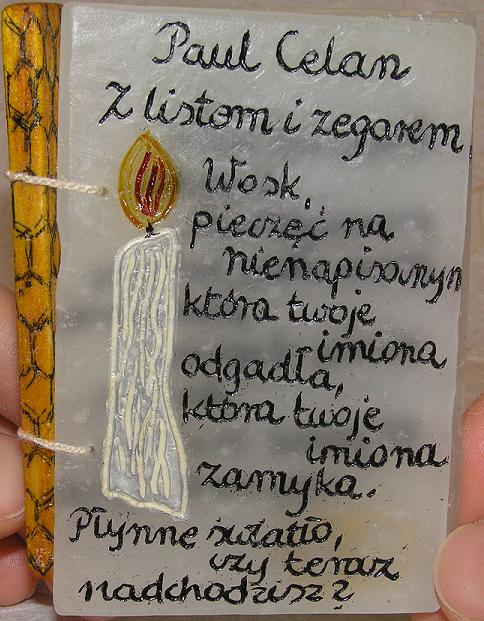 Paul Celan
Z listom i zegarem
Wosk,
pieczęć na
nienapisanym
która twoje
imiona
odgadła,
która twoje
imiona
zamyka.
Płynne światło,
czy teraz
nadchodzisz?